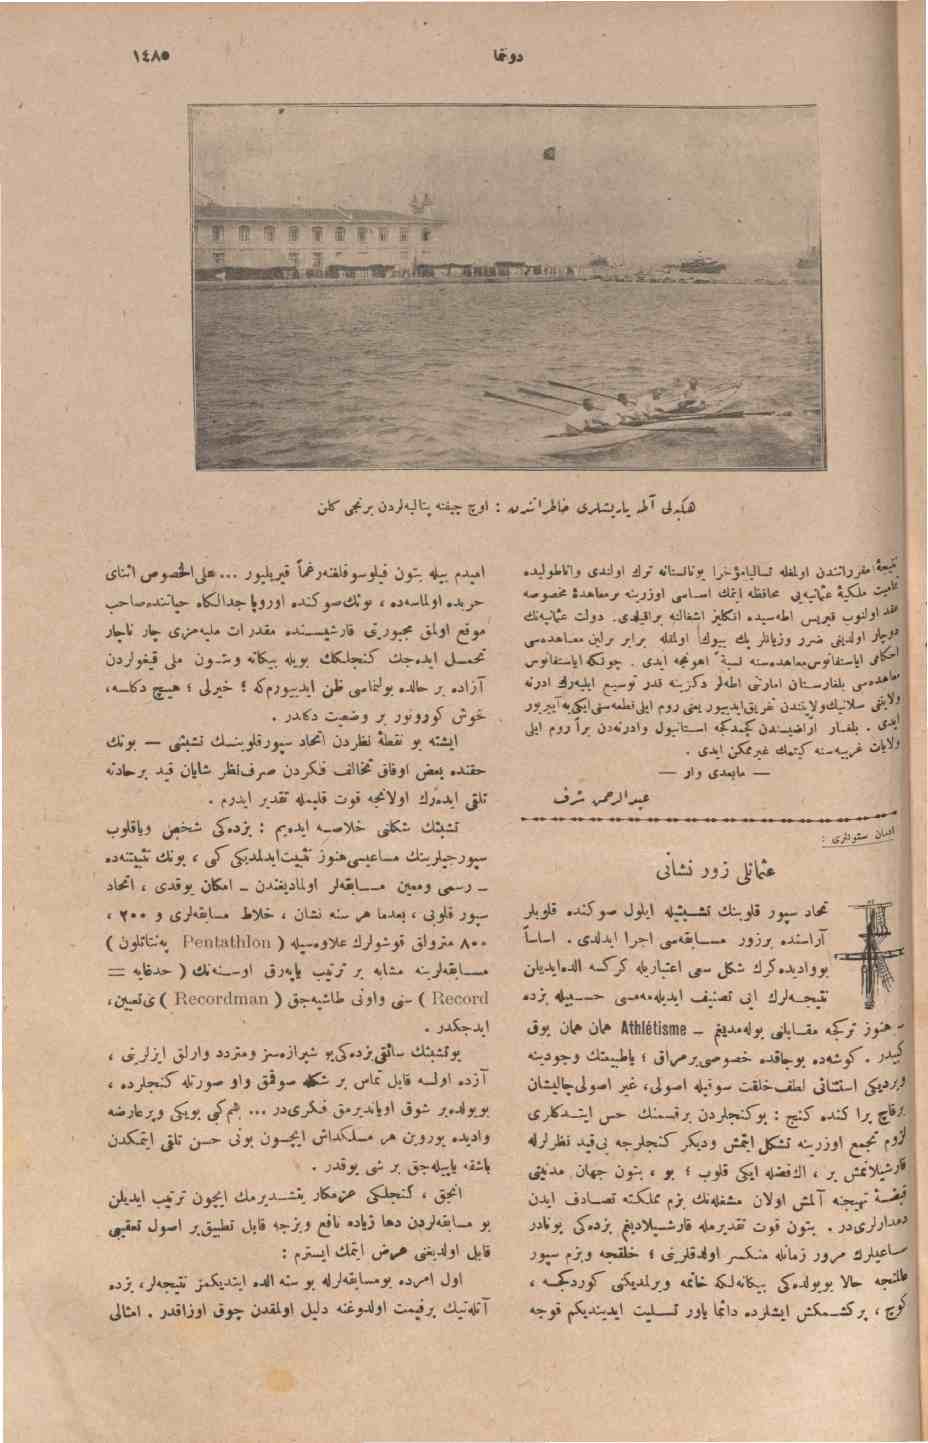 دونما
١٤٨٥
هكبه‌لى آطه ياريشلرى خاطراتندن : اوچ چيفته يتاليه‌لردن برنجى كلن
نتيجهٔ مقرراتندن اولمغله تساليا مؤخرا يونانستانه ترك اولندى واناطوليده
تماميت ملكيهٔ عثمانيه‌يى محافظه ايتمك اساسى اوزرينه بر معاهدهٔ مخصوصه
عقد اولنوب قبريس اطه‌سيده انكليز اشغالنه براقيلدى. دولت عثمانيه‌نك
دوچار اولديغى ضرر وزيانلر پك بيوك اولمغله برابر برلين معاهده‌سى
احكامى اياستفانوس معاهده‌سنه نسبة اهونجه ايدى . چونكه اياستفانوس
معاهده‌سى بلغارستان امارتنى اطه‌لر دكزينه قدر توسيع ايليه‌رك ادرنه
ولايتنى سلانيك ولايتندن تفريق ايدييور يعنى روم ايلى قطعه‌سنى ايكى‌يه آييريور
ايدى . بلغار اراضيسندن كچمدكجه استانبول وادرنه‌دن برآ روم ايلى
ولايات غربيه‌سنه كيتمك غيرممكن ايدى .
— مابعدى وار —
عبدالرحمن شرف
ادمان ستونلرى :
عثمانلى زور نشانى
اتحاد سپور قلوبنك تشبثيله ايلول صوكنده قلوبلر
آراسنده برزور مسابقه‌سى اجرا ايدلدى . اساساً
بووادیده‌كرك شكل سعى اعتباريله كركسه الده‌ايديلن
نتيجه‌لرك ايى تصنيف ايديله‌مه‌مسى حسبيله بزده
ـ هنوز تركجه مقابلنى بوله‌مديغم ـ Athlétisme همان همان يوق
كبيدر . كوشه‌ده بوجاقده خصوصى بر مراق ؛ ياطبيعتك وجودينه
ويرديكى استثنائى لطف خلقت سوقيله اصولى، غير اصولى چاليشان
برقاچ پرا كنده كنج : بوكنجلردن برقسمنك حس ايتدكلرى
لزوم تجمع اوزرينه تشكل ايتمش وديكر كنجلرجه بى‌قيد نظرلرله
قارشيلانمش بر ، اك‌فضله ايكى قلوب ؛ بو ، بتون جهان مدنيتى
قبضهٔ تهييجنه آلمش اولان مشغله‌نك بزم مملكتده تصادف ايدن
دمدارلرى‌در . بتون قوت تقديرمله قارشيلاديغم بزده‌كى بونادر
مساعيلرك مرور زمانله منكسر اولدقلرينى ؛ خلقجه وبزم سپور
عالمنجه حالا بويولده‌كى بيكانه‌لكه خاتمه ويرلمديكنى كوردكجه ،
كوچ ، پر كشمكش ايشلرده دائما ياور تسليت ايدينديكم قوجه
اميدم بيله بتون فيلوسوفلغنه رغماً قيريليور ... على‌الخصوص اثناى
حربده اولماسه‌ده ، بونك صوكنده اوروپا جدالكاه حياتنده صاحب
موقع اولمق مجبوريتى قارشيسنده مقدرات مليه‌مزى چار ناچار
تحمل ايده‌جك كنجلكك بويله بيكانه وشئون ملى قيغولردن
آزاده بر حالده بولنماسى ظن ايدييورم‌كه ؛ خيرلى ؛ هيچ دكلسه،
خوش كورونور بر وضعيت دكلدر .
ايشته بو نقطهٔ نظردن اتحاد سپورقلوبنك تشبثنى — بونك
حقنده بعض اوفاق تخالف فكردن صرف‌نظر شايان قيد برحادثه
تلقى ايده‌رك اولانجه قوت قلبمله تقدير ايدرم .
تشبثك شكلنى خلاصه ايده‌يم : بزده‌كى شخص وياقلوب
سپورجيلرينك مساعيسى هنوز تثبيت ايدلمديكى كبى ، بونك تثبيتنه‌ده
ـ رسمى ومعين مسابقه‌لر اولماديغندن ـ امكان يوقدى ، اتحاد
سپور قلوبى ، بعدما هر سنه نشان ، خلاط مسابقه‌لرى و ٢٠٠ ،
٨٠٠ متروولق قوشولرك علاوه‌سيله ( Pentathlon په‌نتاتلون )
مسابقه‌لرينه مشابه بر ترتيب ياپه‌رق اوسنه‌نك ( حدغايه =
Record ) سنى واونى طاشيه‌جق ( Recordman ) ى تعيين،
ايدجكدر .
بوتشبثك سائقى بزده‌كى بو شيرازه‌سز ومتردد وارلق ايزلرينى ،
آزده اولسه قابل تماس بر شكله صوقمق واو صورتله كنجلرده ،
بويولده بر شوق اوياندیرمق فكرى‌در ... هم كبى بويكى وپرعارضه
واديده يوروين هر مسلكداش ايچون بونى حسن تلقى ايتمكدن
باشقه ياپيله‌جق بر شى يوقدر .
انجق ، كنجلكى عزمكار يتشديرمك ايچون ترتيب ايديلن
بو مسابقه‌لردن دها زياده نافع وبزجه قابل تطبيق بر اصول تعقيبى
قابل اولديغنى عرض ايتمك ايسترم :
اول امرده بومسابقه‌لرله بو سنه الده ايتديكمز نتيجه‌لر، بزده
آتله‌تيك برقيمت اولدوغنه دليل اولمقدن چوق اوزاقدر . امثالى